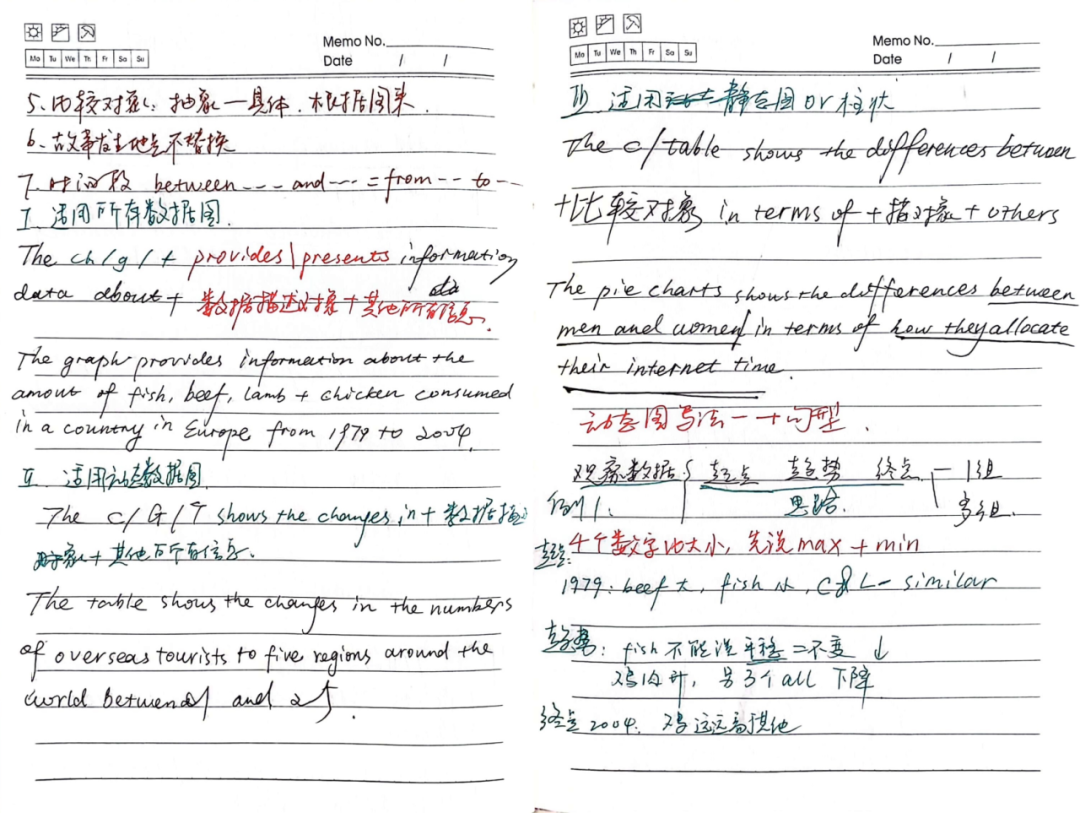 Memo No.
Mo Tu We Th Fr Sa Su
Date / /
5. 比较对象：抽象一具体．根据图来．
6、故事发生地点不替换
7. 时间段 between --- and --- = from -- to --
I. 适用所有数据图．
The ch/g/t provides\presents information
data about + 数据描述对象 + 其他所有信息．
The graph provides information about the
amout of fish, beef, lamb + chicken consumed
in a country in Europe from 1979 to 2004.
II 适用动态数据图．
The c/G/T shows the changes in + 数据描述
对象 + 其他所有信息．
The table shows the changes in the numbers
of overseas tourists to five regions around the
world between and
Memo No.
Mo Tu We Th Fr Sa Su
Date / /
III 适用 静态图 or 柱状
The c/table shows the differences between
+比较对象 in terms of + 描对象 + others
The pie charts shows the differences between
men and women in terms of how they allocate
their internet time.
动态图写法一十句型．
观察数据 起点 趋势 终点 — 1组
例1. 思路． 多组．
起点: 4个数字比大小，先说max + min
1979: beef 大，fish 小，C&L - similar
趋势: fish 不能说平稳=不变 ↓
鸡肉升，另3个all 下降
终点 2004. 鸡远远高其他